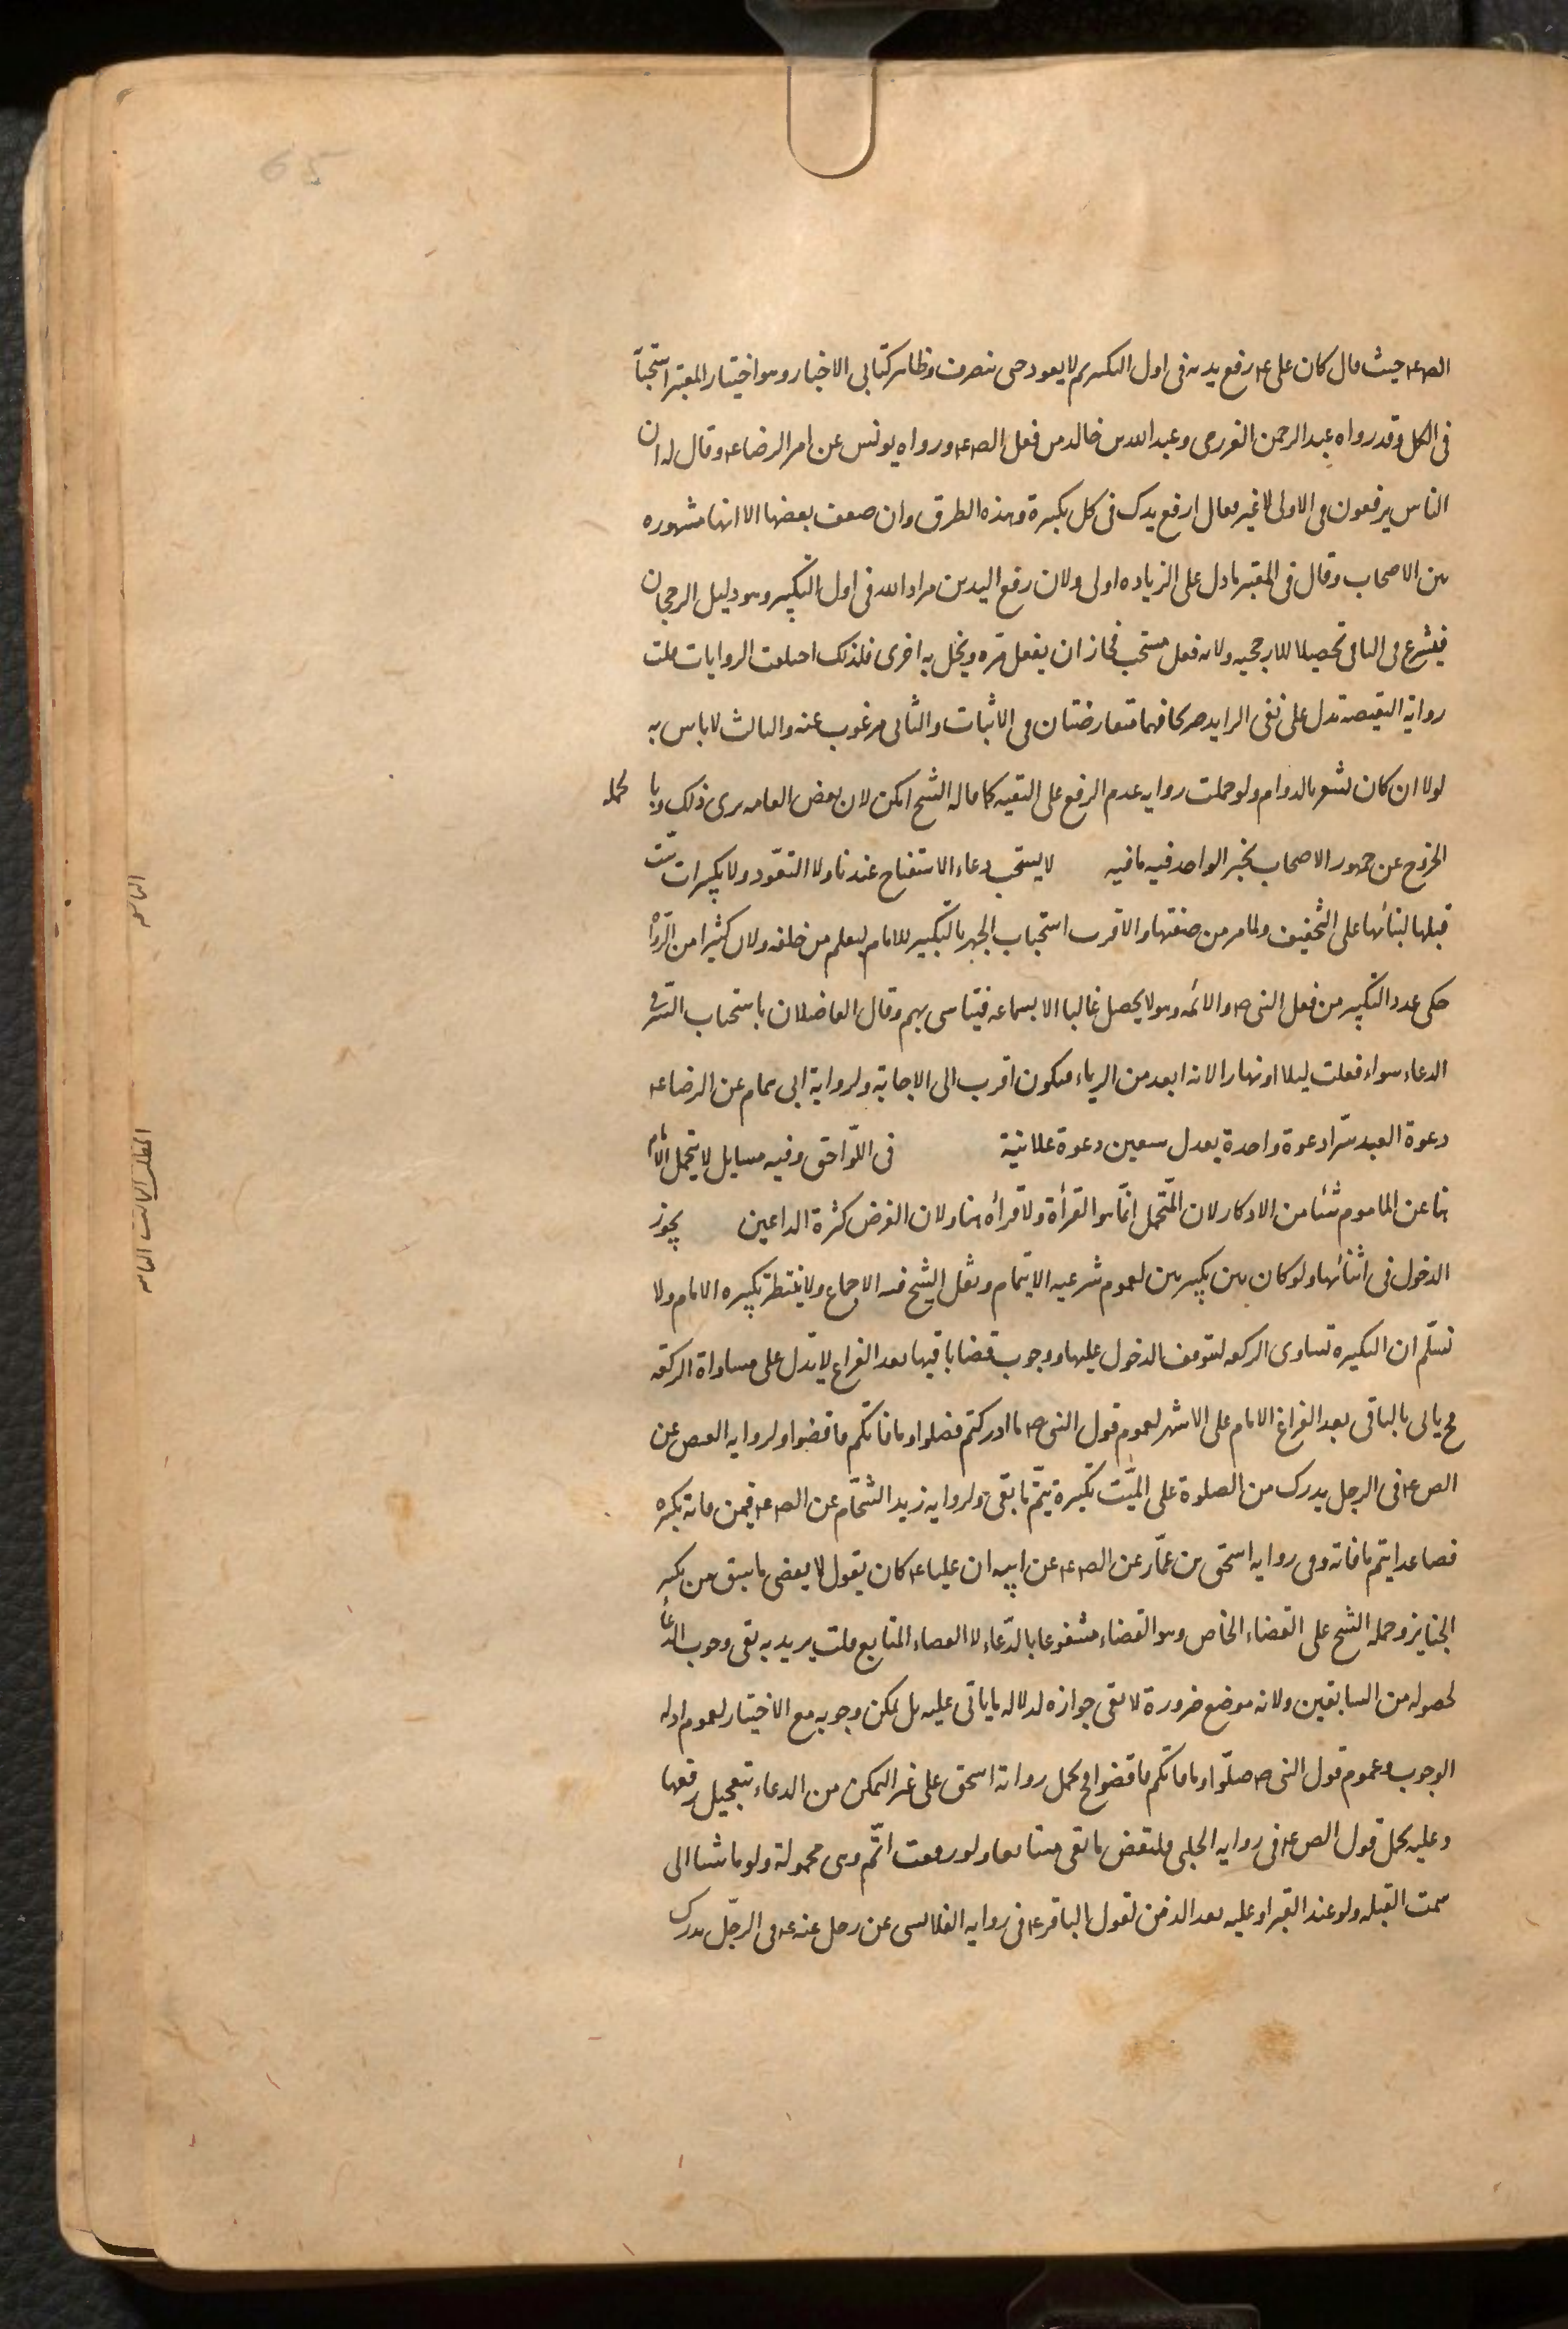 65
الص ع حيث قال كان على ع يرفع يديه فى اول التكبير ثم لا يعود حتى ينصرف وظاهر كتابى الاخبار وهو اختيار المعتبر استحبابا
فى الكل وقد رواه عبد الرحمن العزرمى وعبد الله بن خالد من فعل الص ع ورواه يونس عن امر الرضا ع وقال له ان
الناس يرفعون فى الاولى لا غير فقال ارفع يدك فى كل تكبيرة وهذه الطرق وان ضعف بعضها الا انها مشهوره
بين الاصحاب وقال فى المعتبر ما دل على الزياده اولى ولان رفع اليدين مراد الله فى اول التكبير وهو دليل الرجحان
فيشرع فى الباقى تحصيلا للارجحيه ولانه فعل مستحب فجاز ان يفعل مره ويخل به اخرى فلذلك اختلفت الروايات قلت
رواية النقيصه تدل على نفى الزايد صريحا فهما متعارضتان فى الاثبات والثانى مرغوب عنه والثالث لا باس به
لولا ان كان تشعر بالدوام ولو حملت روايه عدم الرفع على التقيه كما قاله الشيخ امكن لان بعض العامه يرى ذلك وبا لجمله
الخروج عن جمهور الاصحاب بخبر الواحد فيه ما فيه لا يستحب دعاء الاستفتاح عندنا ولا التعوّد ولا تكبيرات ستّ
قبلها لبنائها على التخفيف ولما مر من صفتها والاقرب استحباب الجهر بالتكبير للامام ليعلم من خلفه ولان كثيرا من الرواة
حكى عدد التكبير من فعل النبى ص والائمه وهو لا يحصل غالبا الا بسماعه فيتاسى بهم وقال الفاضلان باستحباب السّر فى
الدعاء سواء فعلت ليلا او نهارا لانه ابعد من الرياء فيكون اقرب الى الاجابة ولرواية ابى همام عن الرضا ع
دعوة العبد سرّا دعوة واحدة يعدل سبعين دعوة علانية فى اللّواحق وفيه مسايل لا يتحمل الامام
هنا عن الماموم شيئا من الاذكار لان المتّحمل انّما هو القرأة ولا قرأه هنا ولان الغرض كثرة الداعين يجوز
الدخول فى اثنائها ولو كان بين تكبيرتين لعموم شرعيه الايتمام ونقل الشيخ فيه الاجماع ولا ينتظر تكبيره الامام ولا
نسلّم ان التكبيره تساوى الركعه لتوقف الدخول عليها ووجوب قضا باقيها بعد الفراغ لا يدل على مساواة الركعه
ح ياتى بالباقى بعد الفراغ الامام على الاشهر لعموم قول النبى ص ما ادركتم فصلوا وما فاتكم فاقضوا ولروايه العيص عن
الص ع فى الرجل يدرك من الصلوة على الميّت تكبيرة يتمّ ما بقى ولروايه زيد الشحّام عن الص ع فيمن فاته تكبيره
فصاعدا يتم ما فاته وفى روايه اسحق بن عمّار عن الص ع عن ابيه ان عليا ع كان يقول لا يقضى ما سبق من تكبير
الجنايز وحمله الشيخ على القضاء الخاص وهو القضاء مشفوعا بالدّعاء لا القضاء المتابع قلت يريد به نفى وجوب الدعأ
لحصوله من السابقين ولانه موضع ضرورة لا نفى جوازه لدلاله ما ياتى عليه بل يمكن وجوبه مع الاختيار لعموم ادله
الوجوب وعموم قول النبى ص صلّوا وما فاتكم فاقضوا فيحمل رواية اسحق على غير التمكن من الدعاء بتعجيل رفعها
وعليه يحمل قول الص ع فى روايه الحلبى فليقض ما بقى متتابعا ولو رفعت اتّم وهى محمولة ولو ماشيا الى
سمت القبله ولو عند القبر او عليه بعد الدفن لقول الباقر ع فى روايه القلانسى عن رجل عنه ع فى الرجل يدرك